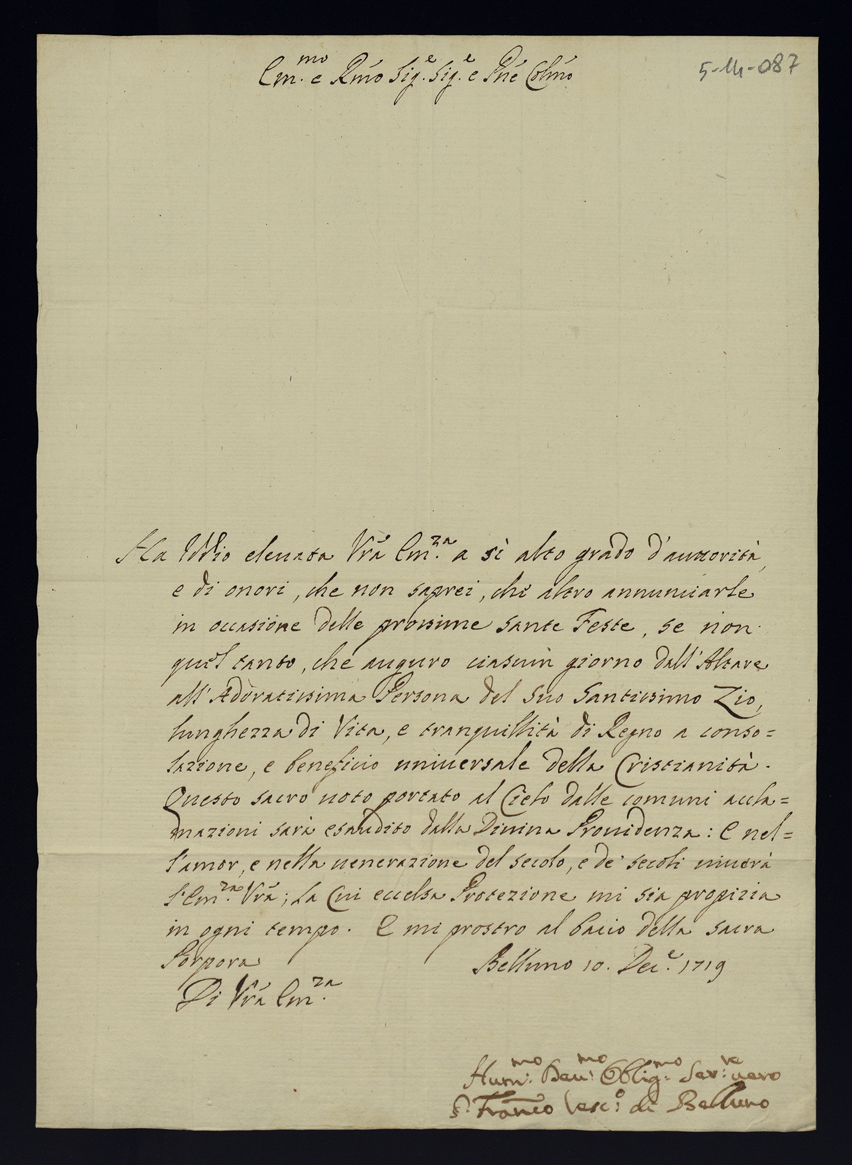 Em.mo e Rmo Sig.e Sig.e e Pne Colmo
5-14-087
Ha Iddio eleuata Vra Em.za a sì alto grado d'auttorità,
e di onori, che non saprei, che altro annunciarle
in occasione delle prossime Sante Feste, se non
quel tanto, che auguro ciascun giorno dall'Altare
all'Adoratissima Persona del Suo Santissimo Zio,
lunghezza di Vita, e tranquillità di Regno a conso=
lazione, e beneficio uniuersale della Cristianità.
Questo sacro uoto portato al Cielo dalle comuni accla=
mazioni sarà esaudito dalla Diuina Prouidenza: E nel=
l'amor, e nella uenerazione del secolo, e de' secoli uiuerà
l'Em.za Vra; la Cui eccelsa Protezione mi sia propizia
in ogni tempo. E mi prostro al bacio della Sacra
Porpora
Belluno 10. Dec.e 1719
Di Vra Em.za
Hum.mo Deu.mo Oblig.mo Ser.re uero
Franco Vesc.o di Belluno